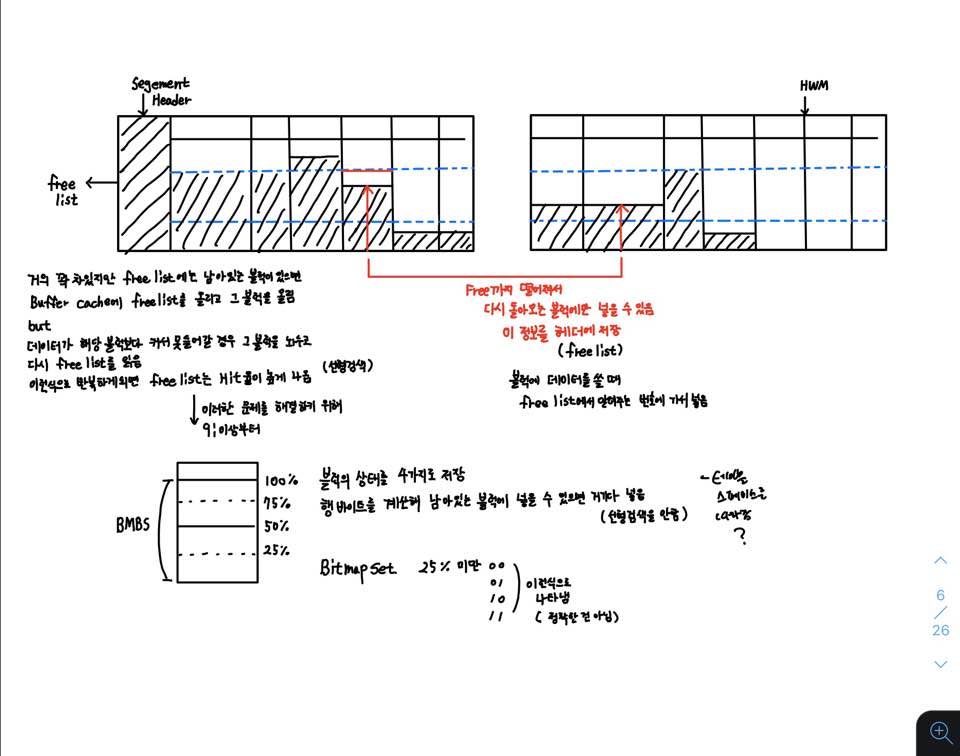 Segement
Header
HWM
free
list
거의 꽉 차있지만 free list에는 남아있는 블럭이 있으면
Buffer cache에 freelist를 올리고 그 블럭을 올림
but
데이터가 해당 블럭보다 커서 못들어갈 경우 그 블럭을 놔두고
다시 free list를 읽음
이런식으로 반복하게되면 free list는 Hit율이 높게 나옴 (선형검색)
이러한 문제를 해결하기 위해
9i이상부터
Free까지 떨어져서
다시 돌아오는 블럭에만 넣을 수 있음
이 정보를 헤더에 저장
(free list)
블럭에 데이터를 쓸 때
free list에서 알려주는 번호에 가서 넣음
BMBS
100%
75%
50%
25%
블럭의 상태를 4가지로 저장
행 바이트를 계산해 남아있는 블럭에 넣을 수 있으면 거기다 넣음
(선형검색을 안함)
- 테이블
스페이스를
?
Bitmap set 25% 미만 00
01
10
11
이런식으로
나타냄
(정확한 건 아님)
6
/
26